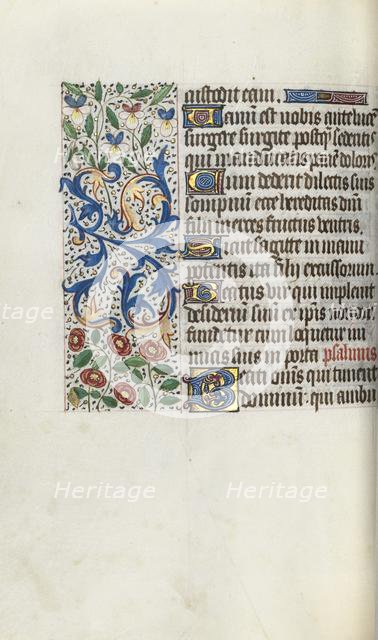 custodit eam.
Vanum est vobis ante luce
surgere surgite postq sederitis
qui manducatis panem doloris
Cum dederit dilectis suis
sompnum ecce hereditas dni
filij merces fructus ventris.
Sicut sagitte in manu
potentis ita filij excussorum.
Beatus vir qui implevit
desiderium suum ex ipsis non
fundetur cum loquetur ini
micis suis in porta psalmus
Beati omnes qui timent
dominum: qui ambu
Heritage
Heritage
Heritage
Heritage
Heritage
Heritage